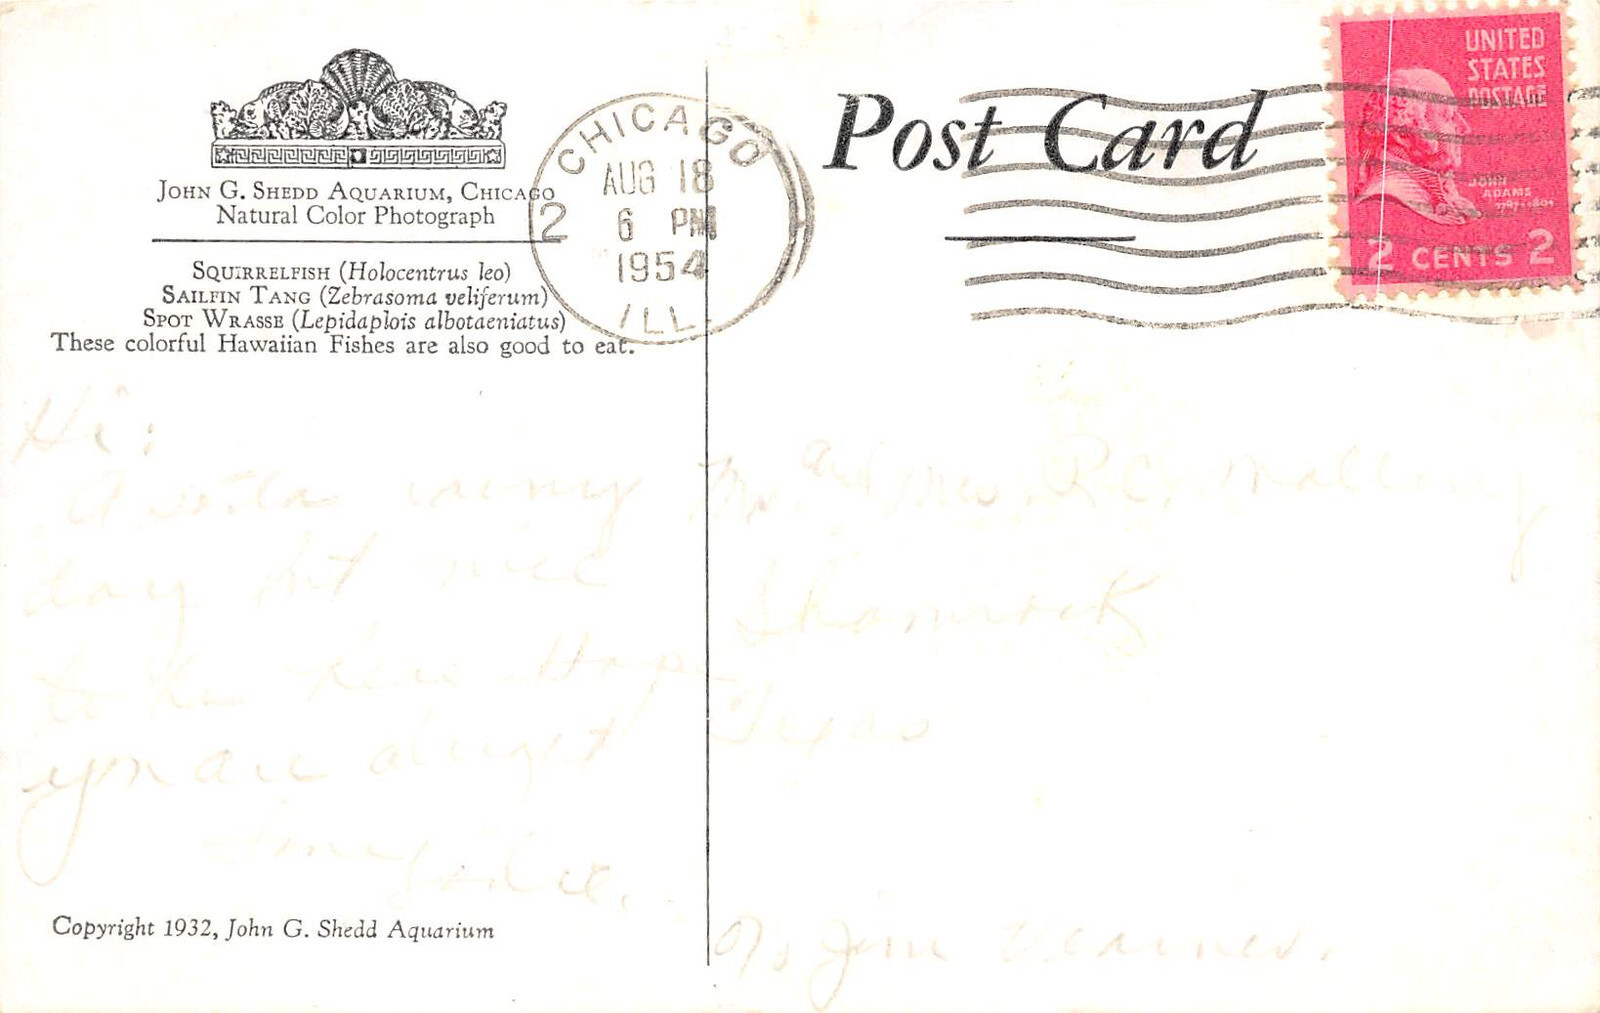 John G. Shedd Aquarium, Chicago
Natural Color Photograph
Squirrelfish (Holocentrus leo)
Sailfin Tang (Zebrasoma veliferum)
Spot Wrasse (Lepidaplois albotaeniatus)
These colorful Hawaiian Fishes are also good to eat.
Hi:
rainy
day but nice
to be here Hope
you are alright
Copyright 1932, John G. Shedd Aquarium
CHICAGO
2
AUG 18
6 PM
1954
ILL
Post Card
UNITED
STATES
POSTAGE
JOHN
ADAMS
1797-1801
2 CENTS 2
Mr and Mrs. R.C. Mallery
Shamrock
Texas
% Jim